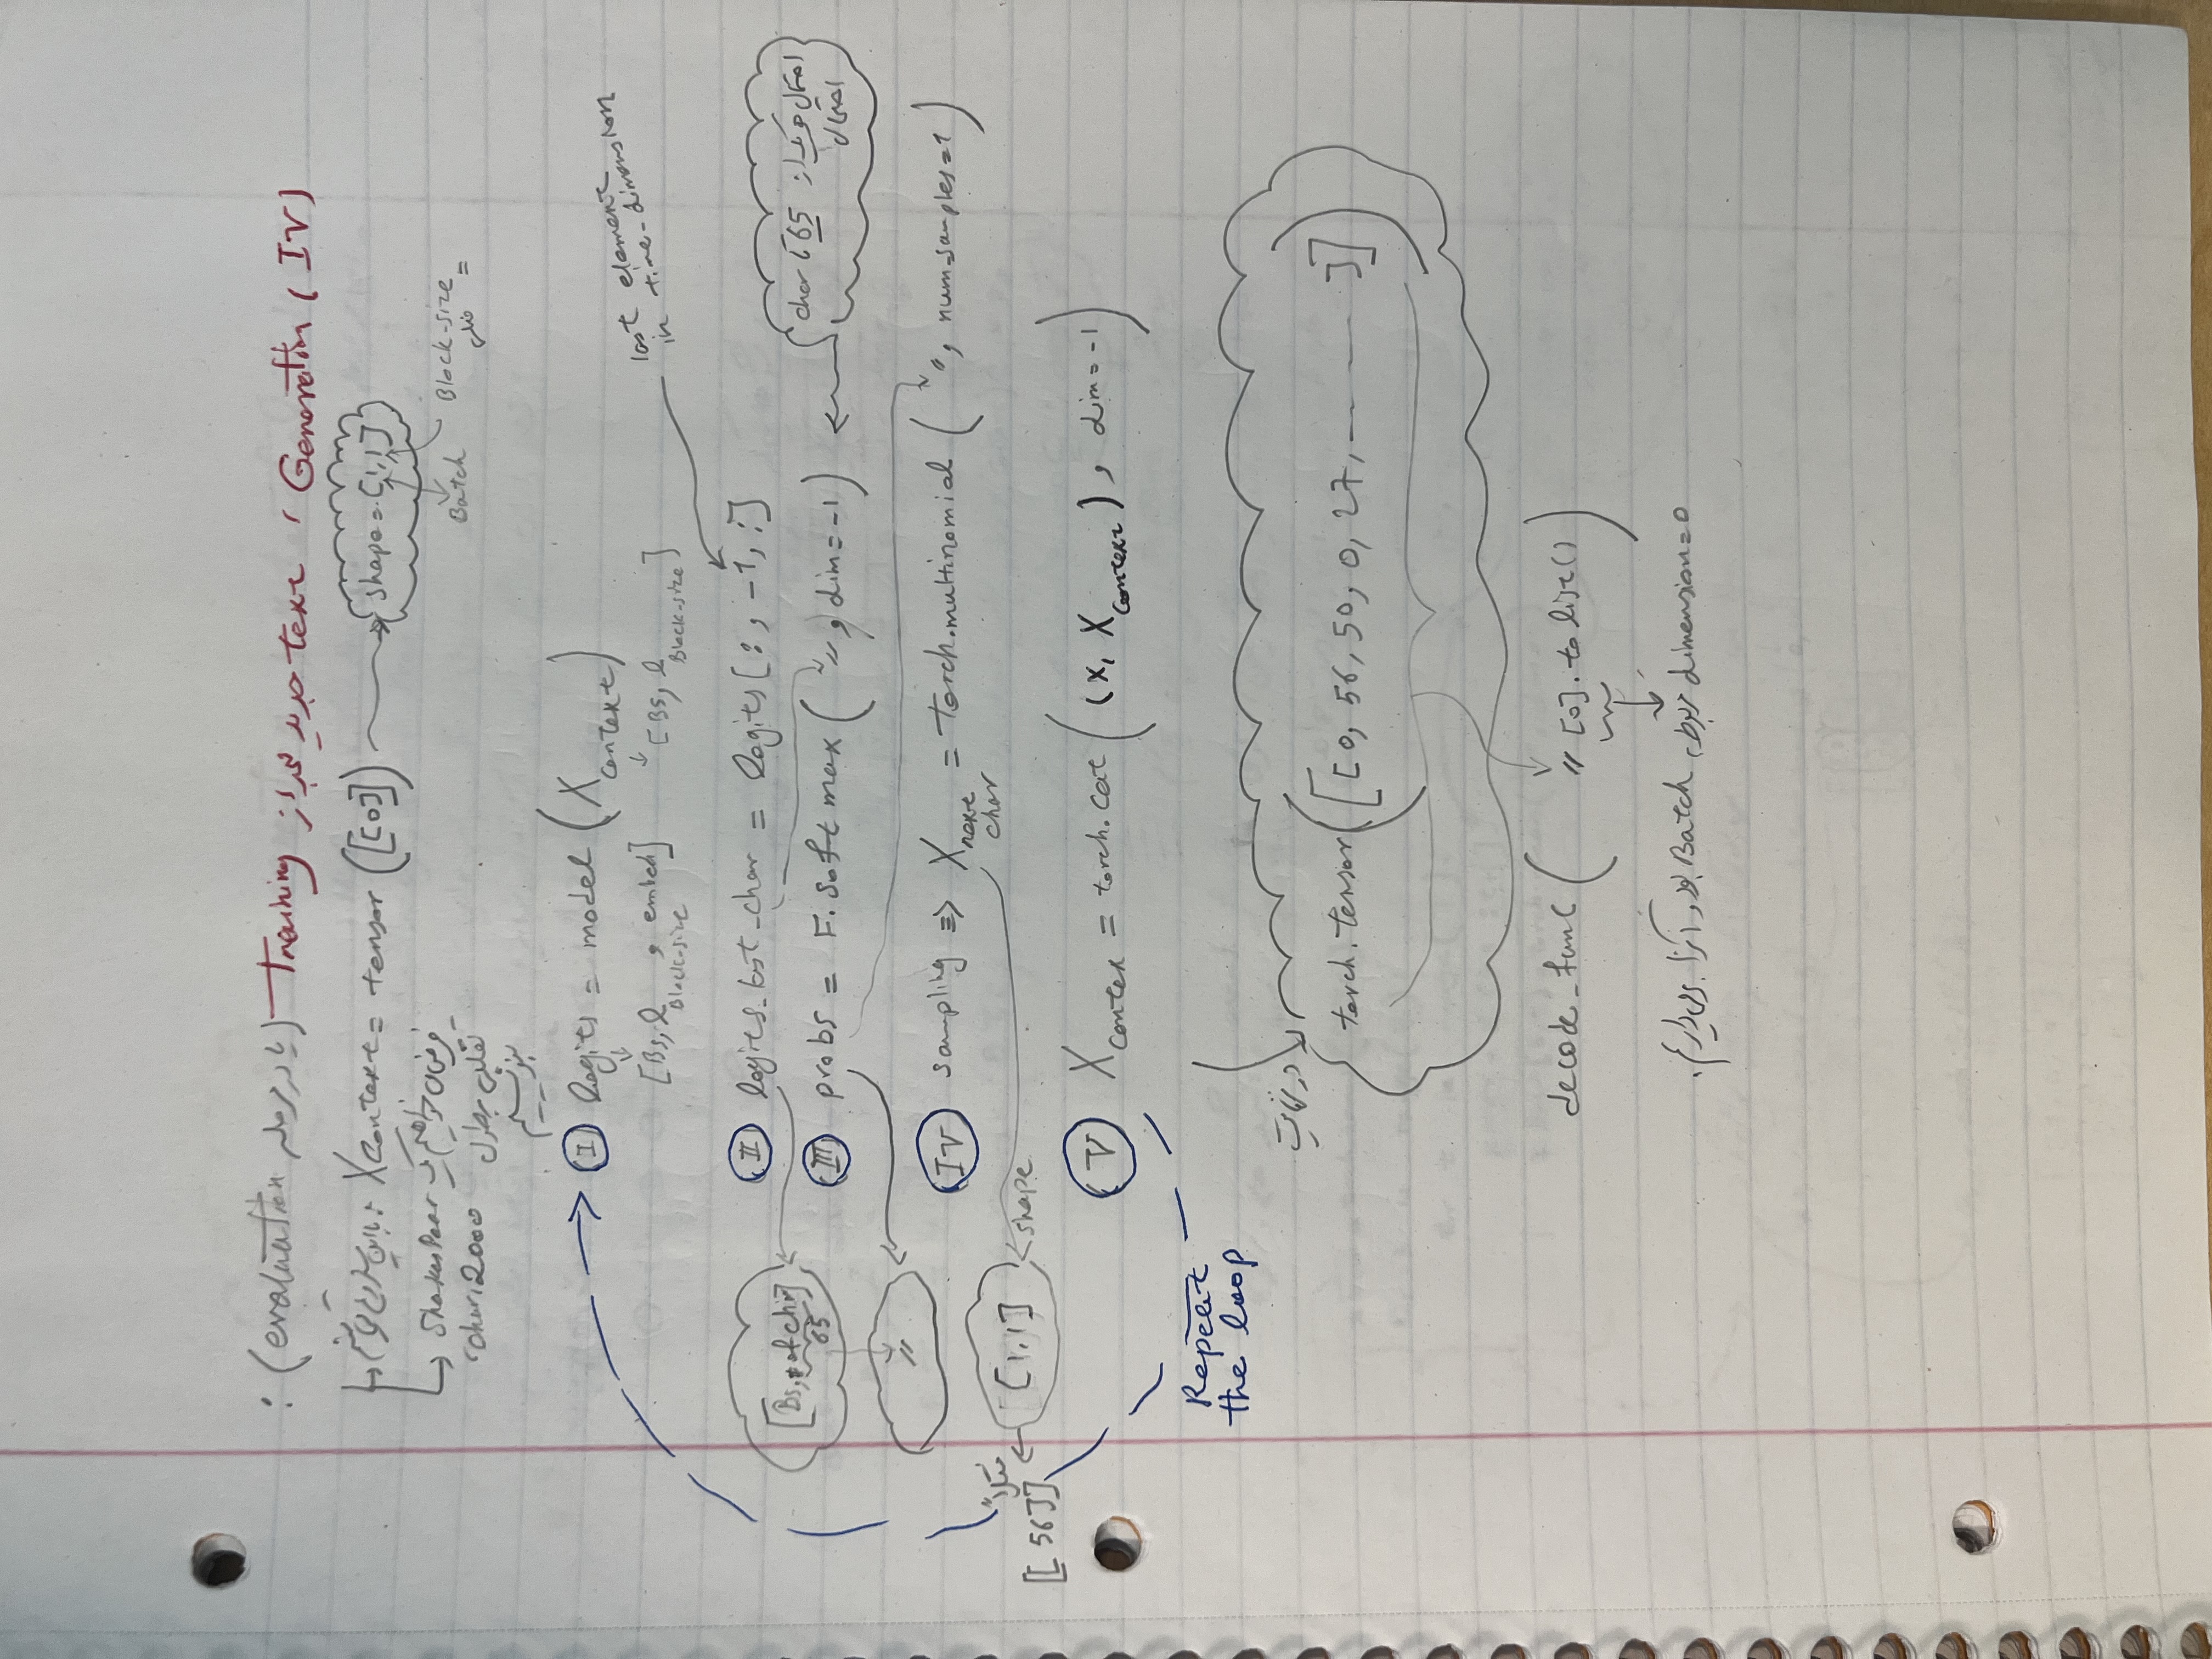 IV) Generation، text جدید بعد از Training (یا در مرحله evaluation) :
X context = tensor([[0]]) → shape = [1,1]
Batch
Block-size
فرض می‌خواهیم یک Shakespear
تقلبی بطول 2000 char،
بنویسیم
I logits = model (X context)
[Bs, l Block-size, embed] [Bs, l Block-size]
last element
in time-dimension
II logits_last_char = logits[:, -1, :]
[Bs, # of char]
65
III probs = F.softmax( 〃, dim=-1)
احتمال هر یک از 65 تا char
احتمال
〃
IV sampling ⇒ X next char = torch.multinomial( 〃, num-samples=1)
shape [1,1]
مثلاً
[[56]]
V X contex = torch.cat((x, X context), dim=-1)
Repeat
the loop
در نهایت
torch.tensor([[0, 56, 50, 0, 27, ---- ]])
decode_func( 〃[0].tolist())
dimension=0 مربوط به Batch بود و آنرا برمی‌داریم.